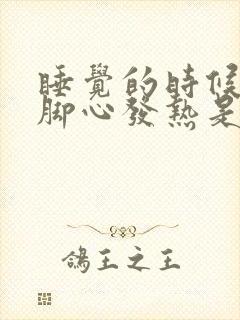 睡覺的時候
腳心發熱是
鴿王之王